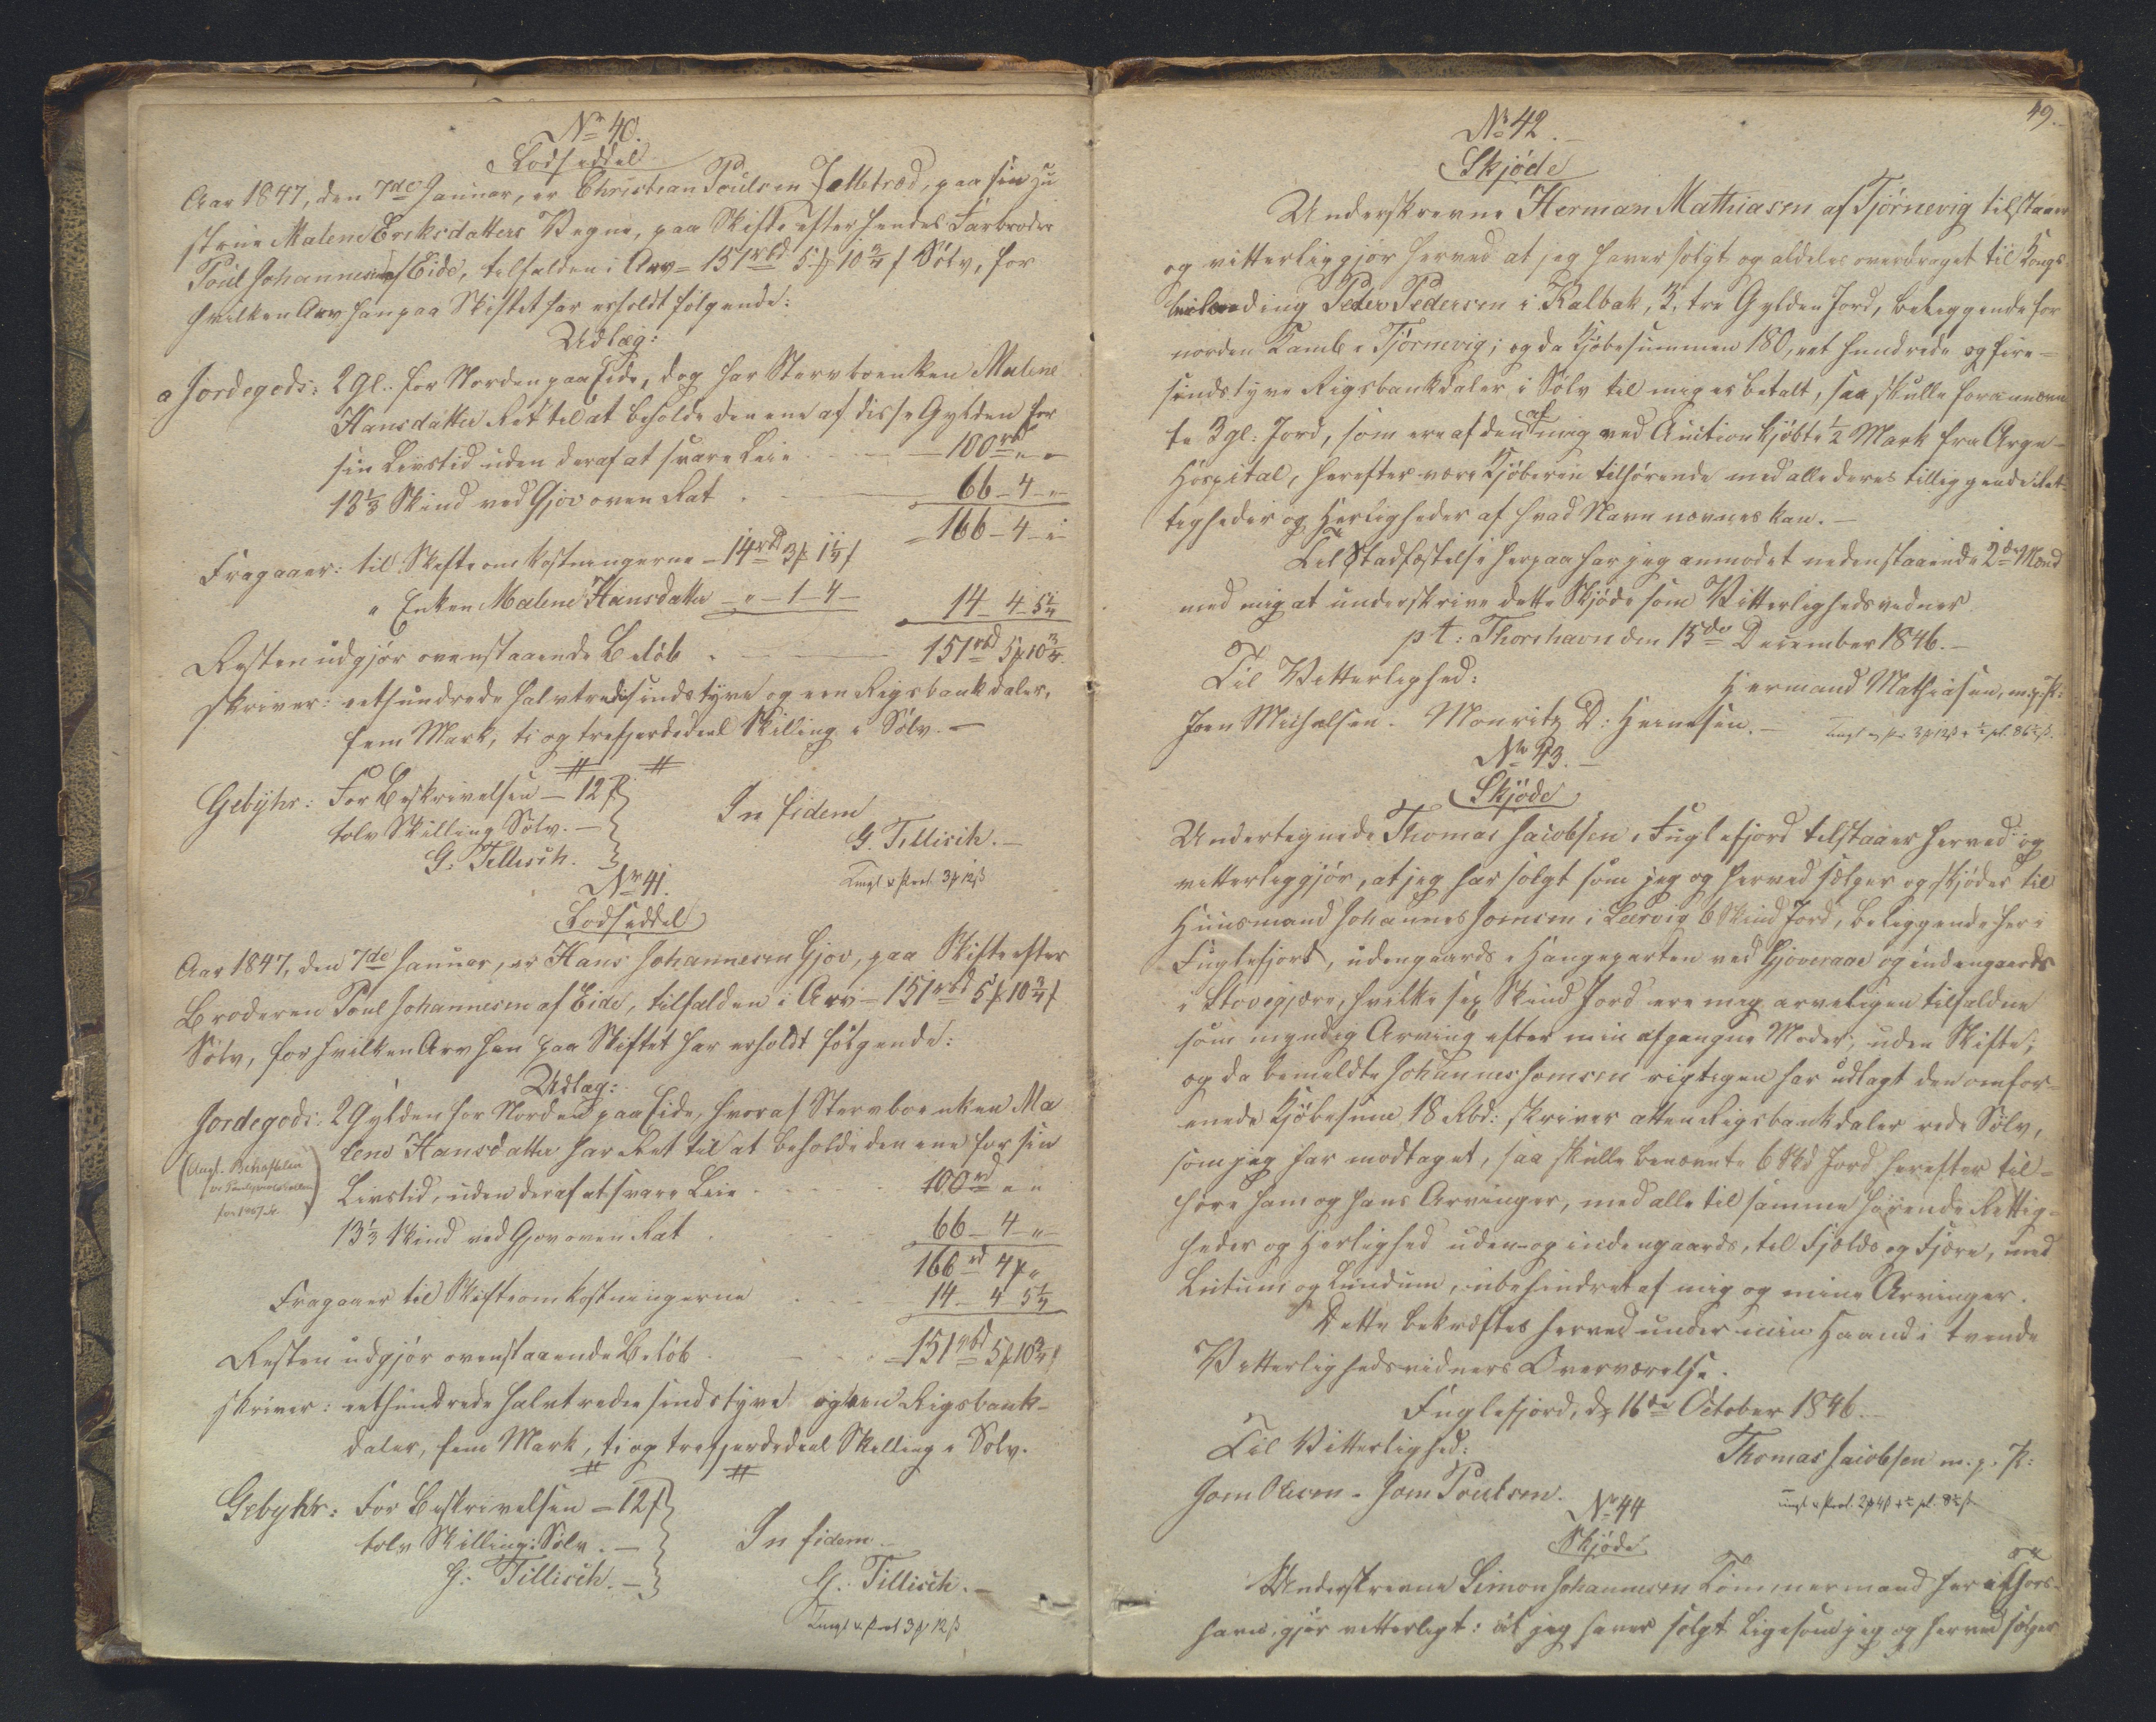 No 40.
Lodseddel
Aar 1847, den 7de Januar, er Christian Poulsen Selletræd, paa sin Hu
strue Malene Eriksdatters Vegne, paa Skifte efter hendes Farbroder
Poul Johannesen af Eide, tilfalden i Arv = 151 rbd 5 ℳ 10 3/4 ß Sølv, for
hvilken Arv han paa Skiftet har erholdt følgende:
Udlæg:
a Jordegods: 2 Gl. for Norden paa Eide, dog har Stervboenken Malene
Hansdatter Ret til at beholde den ene af disse Gylden for
sin Livstid uden deraf at svare Leie - 100 rbd " "
13 1/3 Skind ved Gjov oven Rat - 66 - 4 - "
= 166 - 4 - "
Fragaaer: til Skifteomkostningerne - 14 rbd 3 ℳ 1 1/4 ß
" Enken Malene Hansdatter - " - 1 - 4 - 14 - 4 - 5 1/4
Resten udgjør ovenstaaende Beløb - 151 rbd 5 ℳ 10 3/4
skriver: eethundrede halvtredsindstyve og een Rigsbankdaler,
fem Mark, ti og trefjerdedeel Skilling i Sølv. -
Gebyhr: For Beskrivelsen - 12 ß
tolv Skilling Sølv. -
G. Tillisch.
In fidem
G. Tillisch. -
Tingl. & Prot. 3 ℳ 12 ß
No 41.
Lodseddel
Aar 1847, den 7de Januar, er Hans Johannesen Gjov, paa Skifte efter
Broderen Poul Johannesen af Eide, tilfalden i Arv = 151 rbd 5 ℳ 10 3/4 ß
Sølv, for hvilken Arv han paa Skiftet har erholdt følgende:
Udlæg:
Jordegods: 2 Gylden for Norden paa Eide, hvoraf Stervboenken Ma
lene Hansdatter har Ret til at beholde den ene for sin
Livstid, uden deraf at svare Leie 100 rd " "
13 1/3 Skind ved Gjov oven Rat 66 - 4 - "
166 rd 4 ℳ "
Fragaaer til Skifteomkostningerne 14 - 4 5 1/4
Resten udgjør ovenstaaende Beløb = 151 rbd 5 ℳ 10 3/4 ß
skriver: eethundrede halvtredsindstyve og een Rigsbank-
daler, fem Mark, ti og trefjerdedeel Skilling i Sølv.
Gebyhr: For Beskrivelsen = 12 ß
tolv Skilling Sølv. -
G. Tillisch. -
In fidem
G. Tillisch. -
Tingl. & Prot 3 ℳ 12 ß
49.
No 42. -
Skjøde
Underskrevne Herman Mathiasen af Tjørnevig tilstaaer
og vitterliggjør herved at jeg haver solgt og aldeles overdraget til Kongs
Peder Pedersen i Kalbak, 3, tre Gylden Jord, beliggende for
norden Kamb i Tjørnevig; og da Kjøbesummen 180, eet hundrede og fire-
sindstyve Rigsbankdaler i Sølv til mig er betalt, saa skulle forannævn
te 3 gl: Jord, som ere af den af mig ved Auction kjøbte 1/2 Mark fra Arge-
Hospital, herefter være Kjøberen tilhørende med alle deres tilliggende Ret-
tigheder og Herligheder af hvad Navn nævnes kan. -
Til Stadfæstelse herpaa har jeg anmodet nedenstaaende 2de Mænd
med mig at underskrive dette Skjøde som Vitterlighedsvidner
pt: Thorshavn den 15de December 1846. -
Til Vitterlighed:
Hermand Mathiasen, m. p. P:
Joen Michelsen. Mouritz D: Heinesen. -
No 43. -
Skjøde
Undertegnede Thomas Jacobsen i Fuglefjord tilstaaer herved og
vitterliggjør, at jeg har solgt som jeg og herved sælger og skjøder til
Huusmand Johannes Joensen i Leervig 6 Skind Jord, beliggende her i
Fuglefjord, udengaards i Hangeparten ved Gjoveraae og indengaards
i Stovegjære, hvilke sex Skind Jord ere mig arveligen tilfaldne
som myndig Arving efter min afgangne Moder, uden Skifte;
og da bemeldte Johannes Joensen rigtigen har udlagt den omfor-
enede Kjøbesum 18 Rbd: skriver atten Rigsbankdaler rede Sølv,
som jeg har modtaget, saa skulle benævnte 6 Skd Jord herefter til-
høre ham og hans Arvinger, med alle til samme hørende Rettig-
heder og Herlighed uden- og indengaards, til Fjelds og Fjære, med
Lutum og Lundum, ubehindret af mig og mine Arvinger.
Dette bekræftes herved under min Haand i tvende
Vitterlighedsvidners Overværelse.
Fuglefjord, d. 16de October 1846. -
Til Vitterlighed:
Thomas Jacobsen m. p. P:
Joen Olesen - Joen Poulsen.
No 44
Skjøde
Underskrevne Simon Johannesen Tømmermand her i Thors-
havn, gjør vitterligt: at jeg haver solgt ligesom jeg og herved sælger